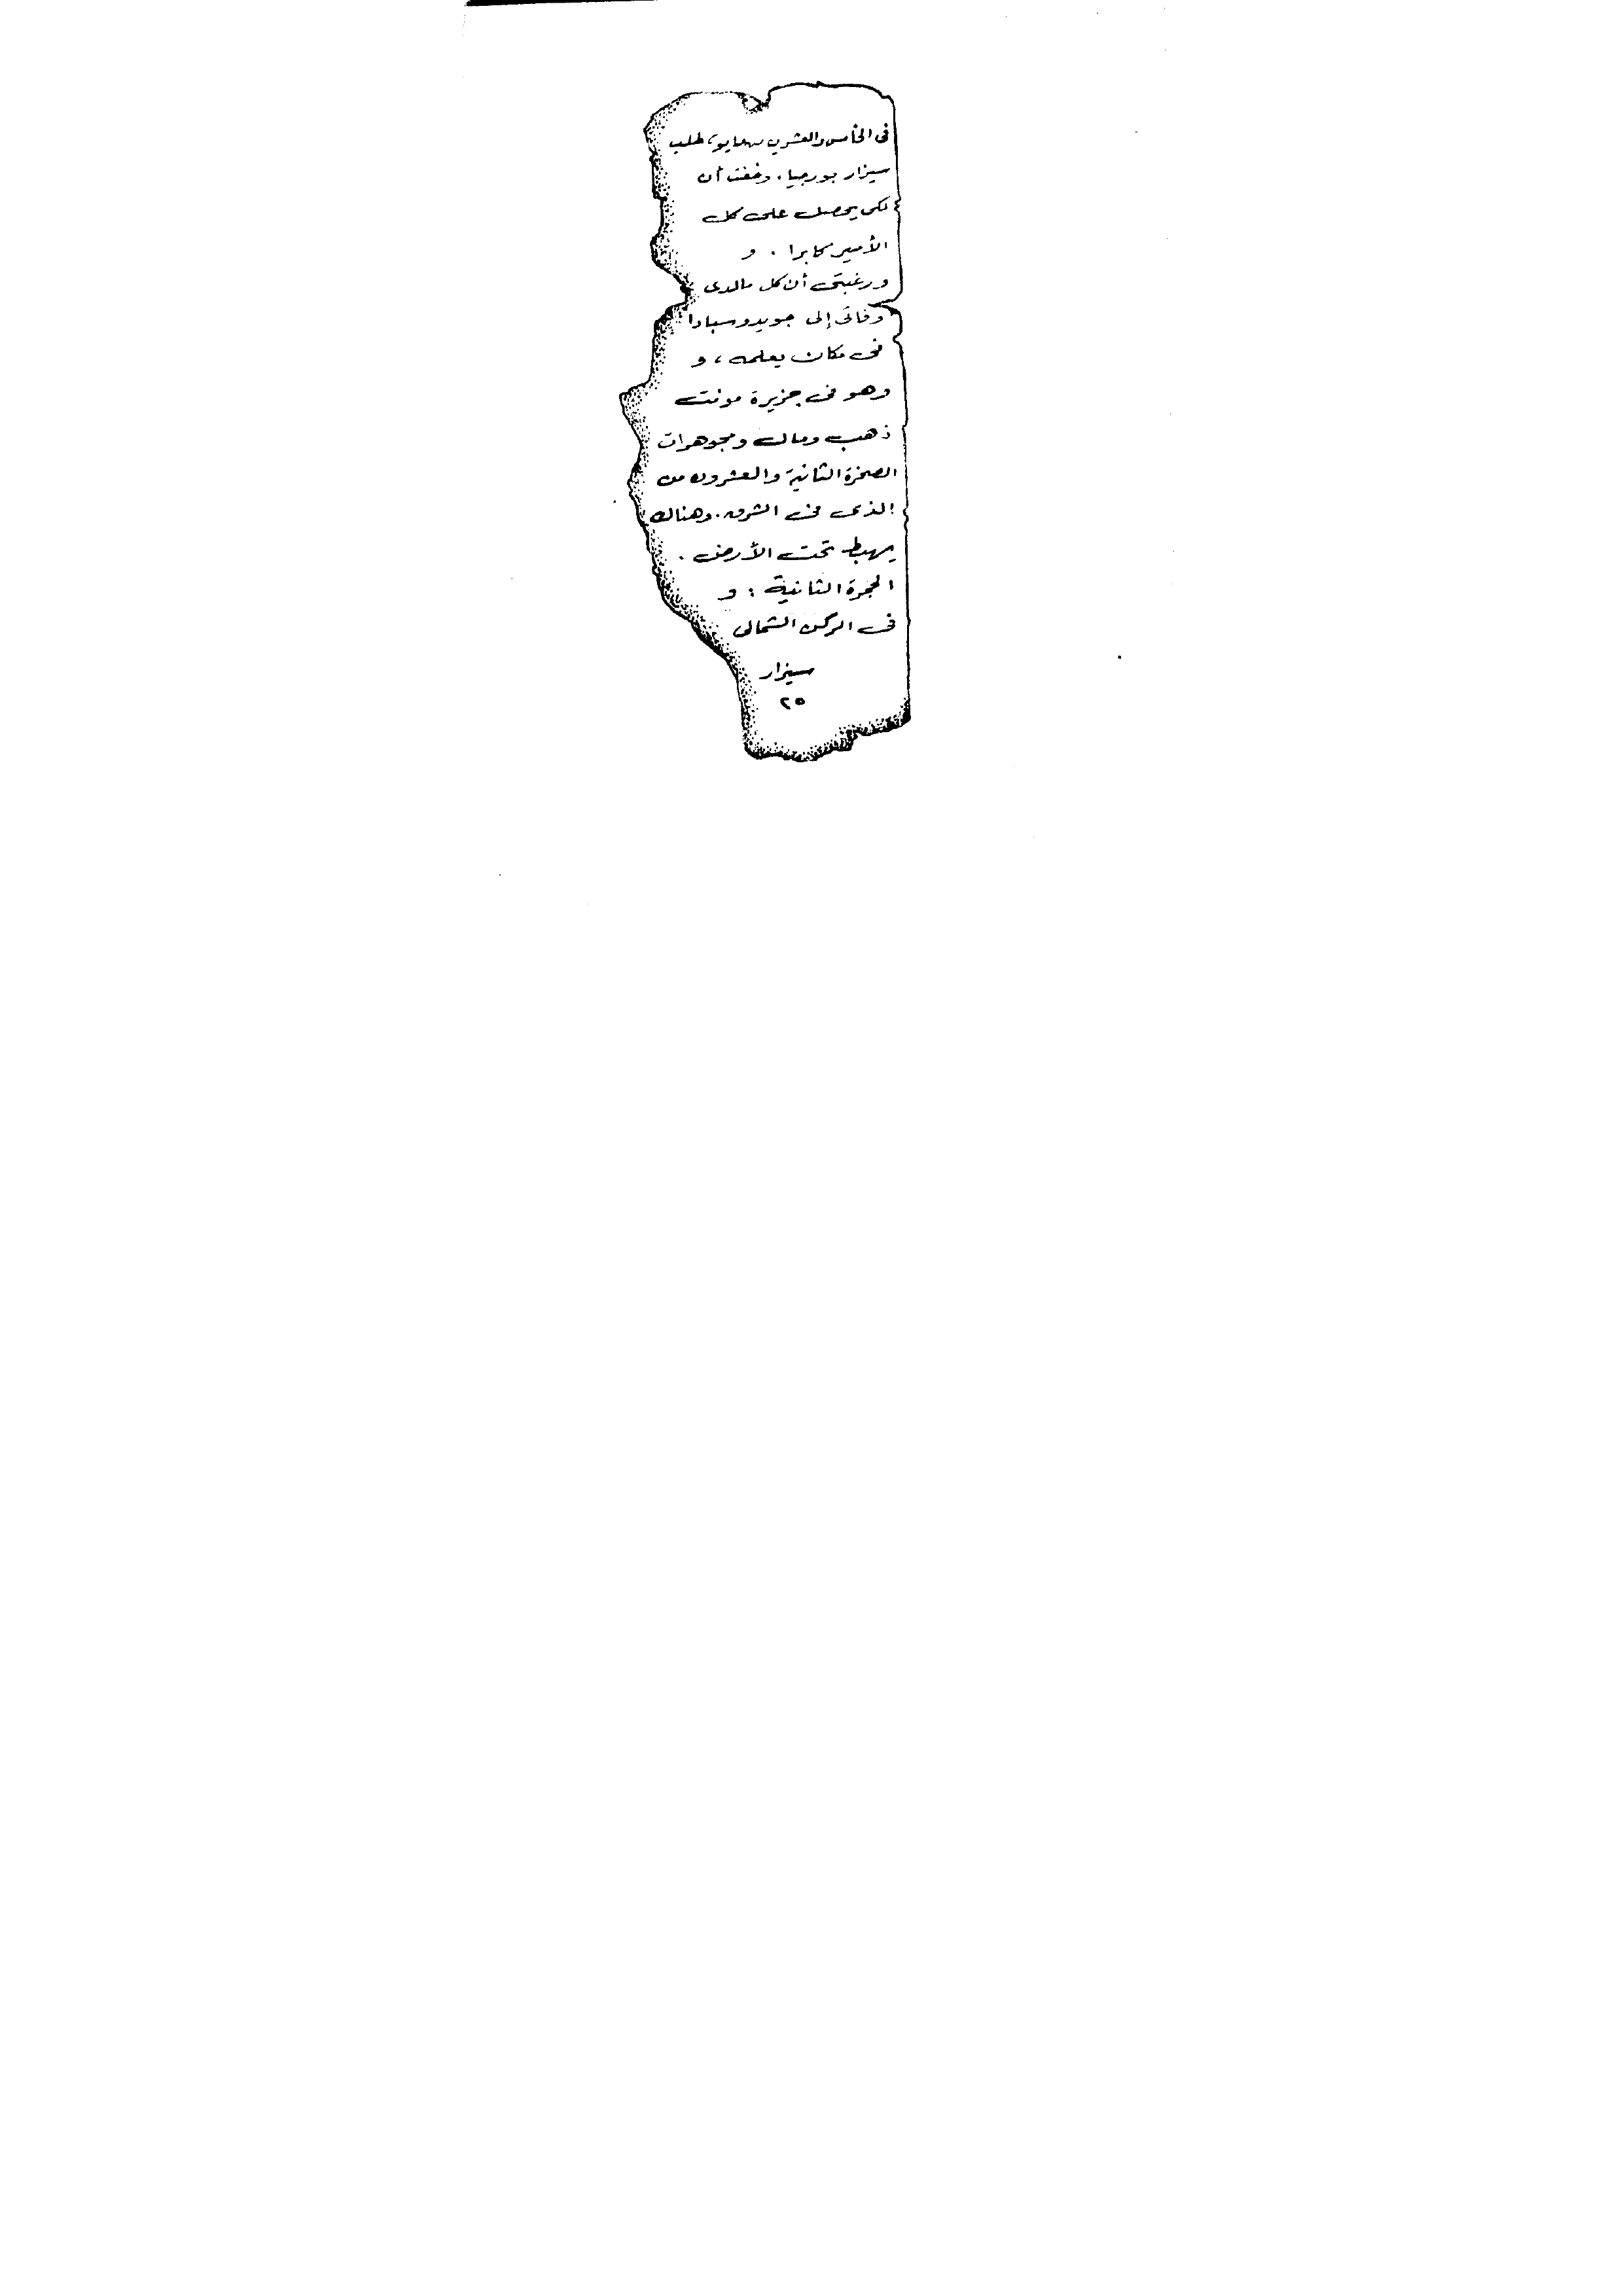 فى الخامس والعشرين من مايو، طلب
سيزار بورجيا. وخفت أن
لكى يحصل على كل
الأمير كابرا . و
ورغبتى أن كل مالدى
وفاتى إلى جويدو سبادا
فى مكان يعلمه ، و
وهو فى جزيرة مونت
ذهب ومال ومجوهرات
الصخرة الثانية والعشرون من
الذى فى الشرق . وهناك
يهبط تحت الأرض .
الحجرة الثانية : و
فى الركن الشمالى
سيزار
٢٥